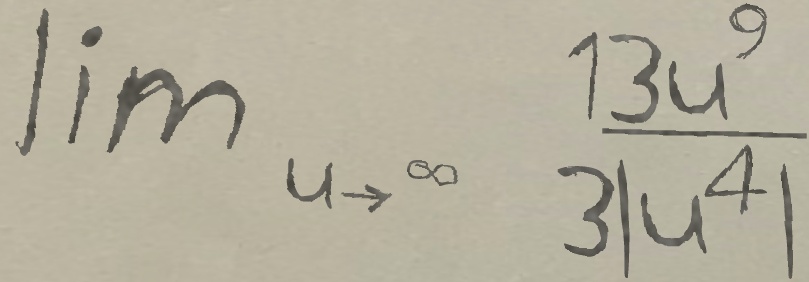 lim u→∞ 13u⁹
3|u⁴|